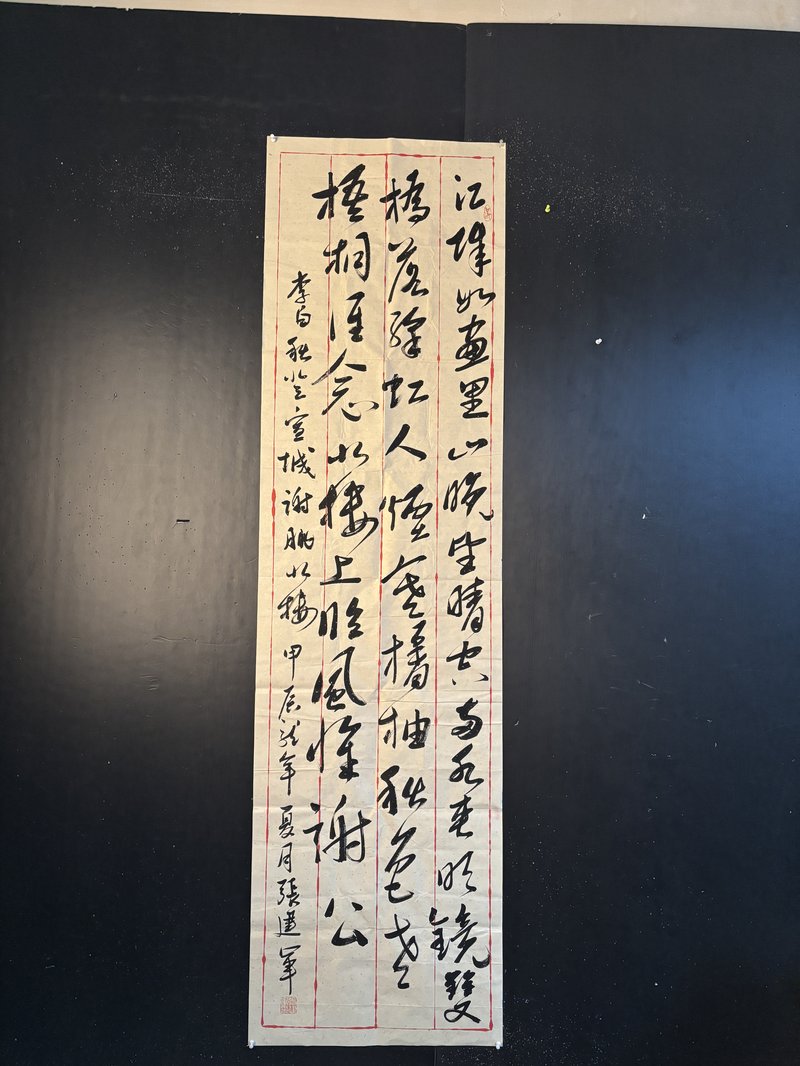 江城如畫里山晚望晴空兩水夾明鏡雙
橋落綵虹人煙寒橘柚秋色老
梧桐誰念北樓上臨風懷謝公
李白秋登宣城謝朓北樓 甲辰龍年夏月張建軍